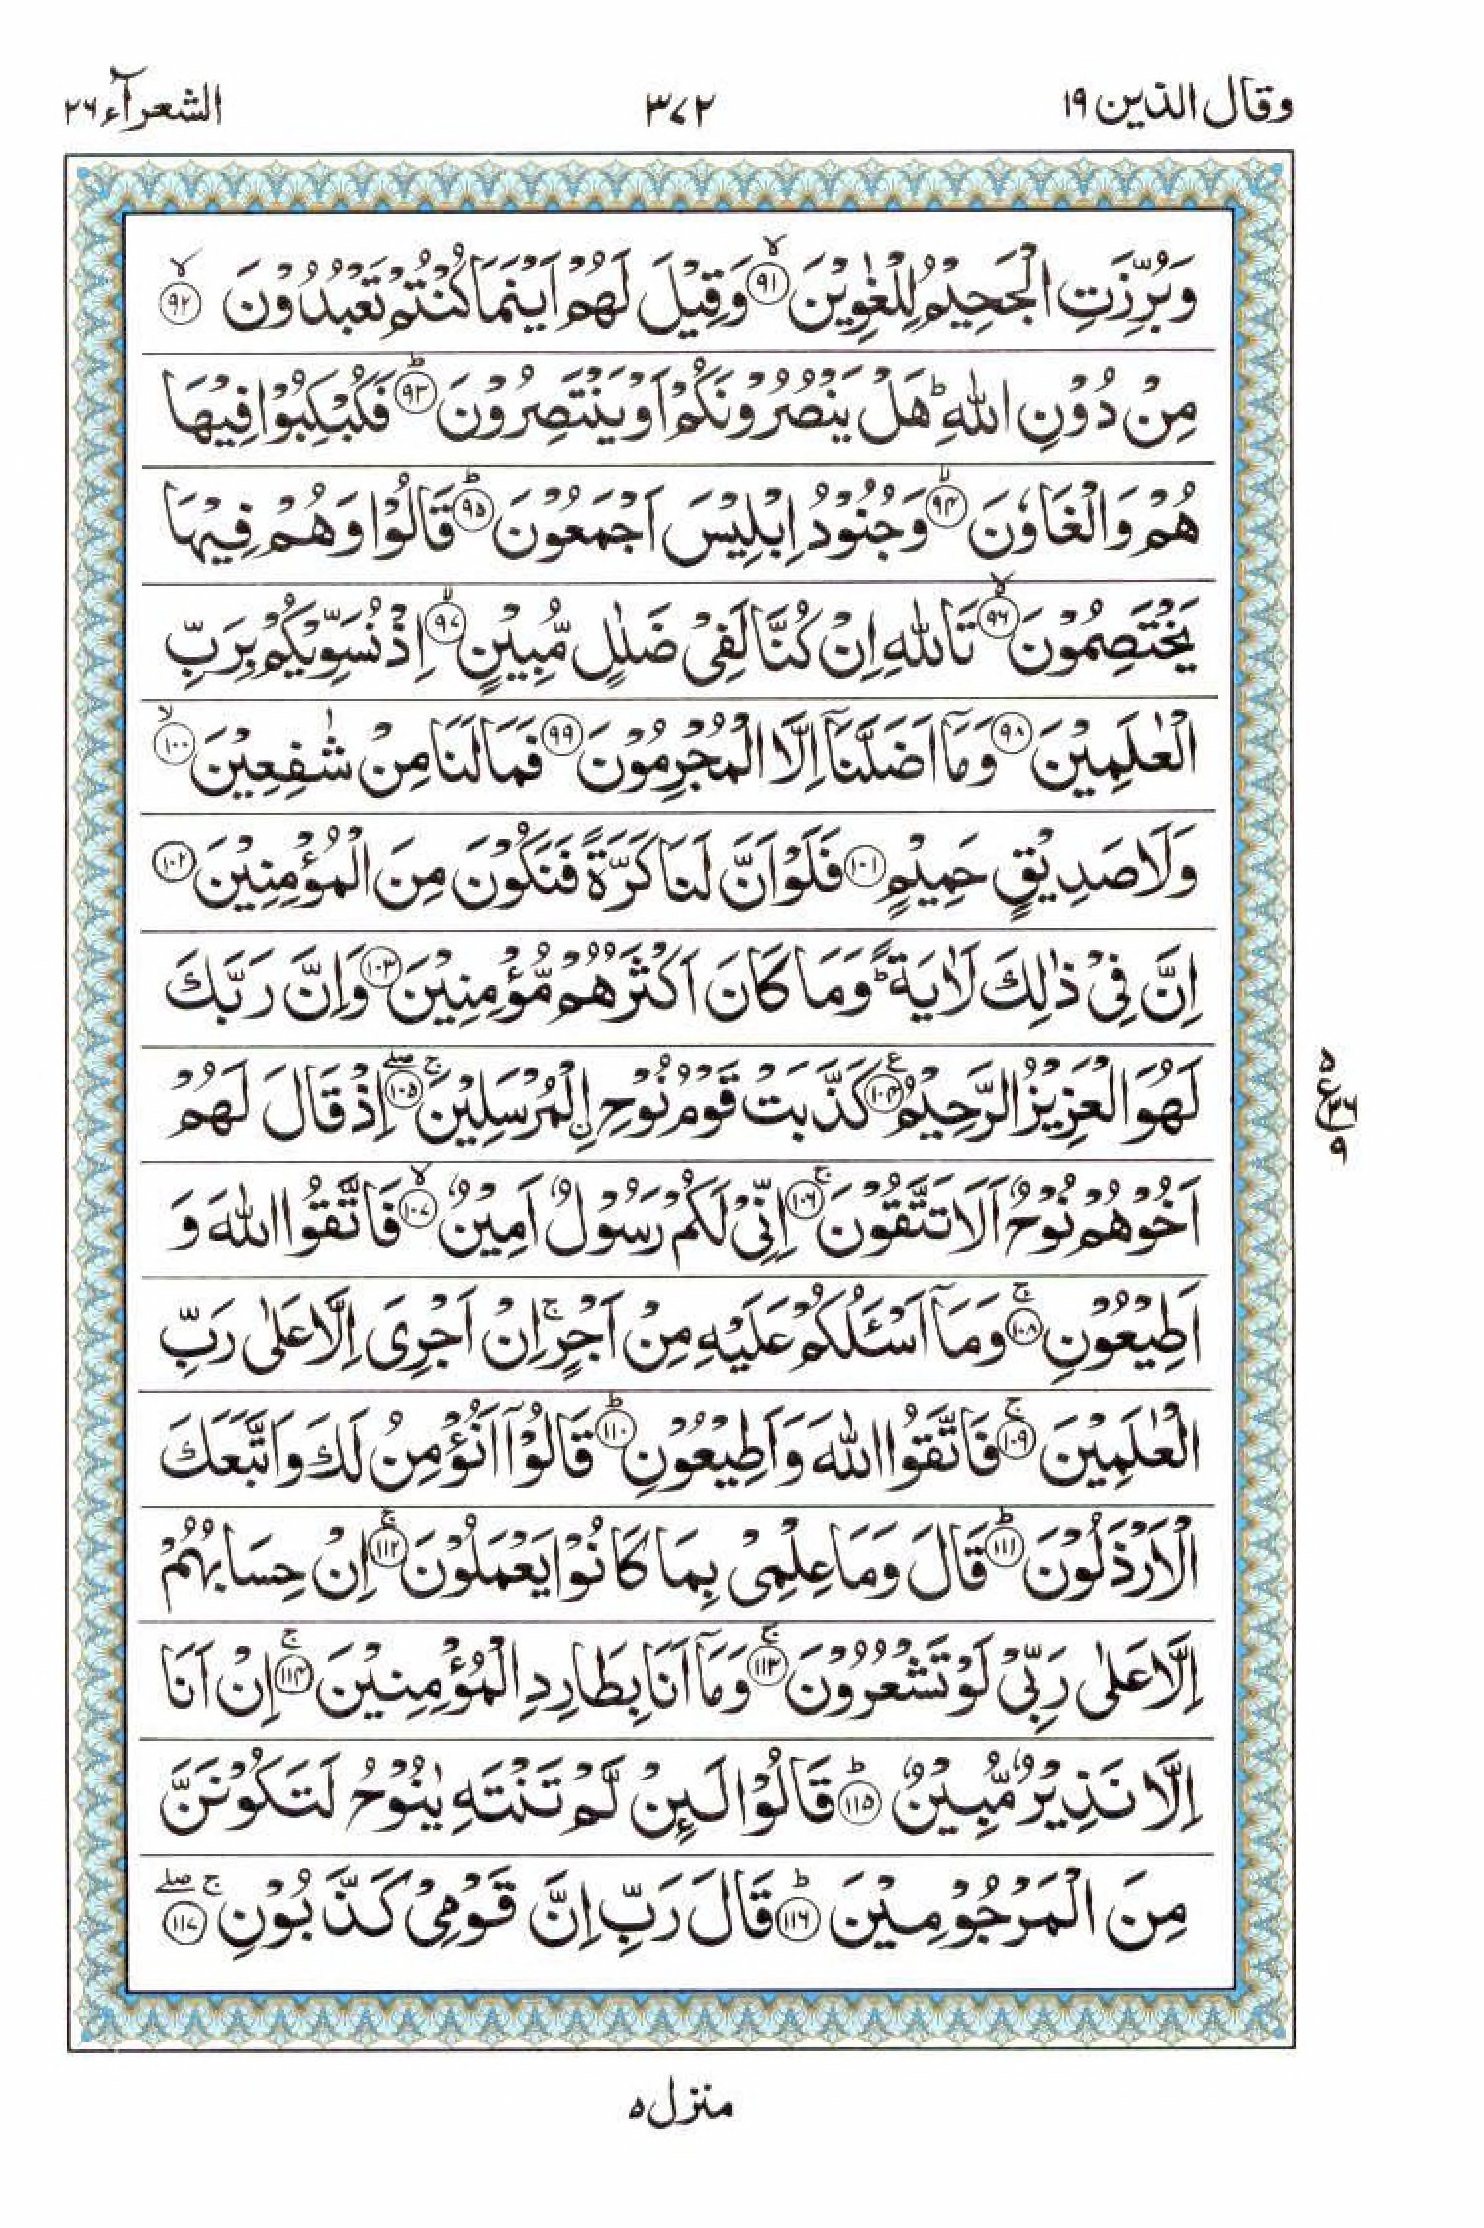 وقال الذین ۱۹
۳۷۲
الشعرآء ۲۶
وَبُرِّزَتِ الْجَحِیْمُ لِلْغٰوِیْنَ ۙ﴿۹۱﴾ وَقِیْلَ لَهُمْ اَیْنَمَا كُنْتُمْ تَعْبُدُوْنَ ۙ﴿۹۲﴾
مِنْ دُوْنِ اللّٰهِ ؕ هَلْ یَنْصُرُوْنَكُمْ اَوْ یَنْتَصِرُوْنَ ؕ﴿۹۳﴾ فَكُبْكِبُوْا فِیْهَا
هُمْ وَالْغَاوٗنَ ۙ﴿۹۴﴾ وَجُنُوْدُ اِبْلِیْسَ اَجْمَعُوْنَ ؕ﴿۹۵﴾ قَالُوْا وَهُمْ فِیْهَا
یَخْتَصِمُوْنَ ۙ﴿۹۶﴾ تَاللّٰهِ اِنْ كُنَّا لَفِیْ ضَلٰلٍ مُّبِیْنٍ ۙ﴿۹۷﴾ اِذْ نُسَوِّیْكُمْ بِرَبِّ
الْعٰلَمِیْنَ ﴿۹۸﴾ وَمَاۤ اَضَلَّنَاۤ اِلَّا الْمُجْرِمُوْنَ ﴿۹۹﴾ فَمَا لَنَا مِنْ شٰفِعِیْنَ ۙ﴿۱۰۰﴾
وَلَا صَدِیْقٍ حَمِیْمٍ ﴿۱۰۱﴾ فَلَوْ اَنَّ لَنَا كَرَّةً فَنَكُوْنَ مِنَ الْمُؤْمِنِیْنَ ﴿۱۰۲﴾
اِنَّ فِیْ ذٰلِكَ لَاٰیَةً ؕ وَمَا كَانَ اَكْثَرُهُمْ مُّؤْمِنِیْنَ ﴿۱۰۳﴾ وَاِنَّ رَبَّكَ
لَهُوَ الْعَزِیْزُ الرَّحِیْمُ ﴿۱۰۴﴾ع كَذَّبَتْ قَوْمُ نُوْحِ ِ۟الْمُرْسَلِیْنَ ۚۖ﴿۱۰۵﴾ اِذْ قَالَ لَهُمْ
ع ۵ ۳۶ ۹
اَخُوْهُمْ نُوْحٌ اَلَا تَتَّقُوْنَ ۚ﴿۱۰۶﴾ اِنِّیْ لَكُمْ رَسُوْلٌ اَمِیْنٌ ۙ﴿۱۰۷﴾ فَاتَّقُوا اللّٰهَ وَ
اَطِیْعُوْنِ ۚ﴿۱۰۸﴾ وَمَاۤ اَسْـَٔلُكُمْ عَلَیْهِ مِنْ اَجْرٍ ۚ اِنْ اَجْرِیَ اِلَّا عَلٰی رَبِّ
الْعٰلَمِیْنَ ۚ﴿۱۰۹﴾ فَاتَّقُوا اللّٰهَ وَاَطِیْعُوْنِ ؕ﴿۱۱۰﴾ قَالُوْۤا اَنُؤْمِنُ لَكَ وَاتَّبَعَكَ
الْاَرْذَلُوْنَ ؕ﴿۱۱۱﴾ قَالَ وَمَا عِلْمِیْ بِمَا كَانُوْا یَعْمَلُوْنَ ۚ﴿۱۱۲﴾ اِنْ حِسَابُهُمْ
اِلَّا عَلٰی رَبِّیْ لَوْ تَشْعُرُوْنَ ۚ﴿۱۱۳﴾ وَمَاۤ اَنَا بِطَارِدِ الْمُؤْمِنِیْنَ ۚ﴿۱۱۴﴾ اِنْ اَنَا
اِلَّا نَذِیْرٌ مُّبِیْنٌ ؕ﴿۱۱۵﴾ قَالُوْا لَئِنْ لَّمْ تَنْتَهِ یٰنُوْحُ لَتَكُوْنَنَّ
مِنَ الْمَرْجُوْمِیْنَ ؕ﴿۱۱۶﴾ قَالَ رَبِّ اِنَّ قَوْمِیْ كَذَّبُوْنِ ۚۖ﴿۱۱۷﴾
منزل ۵